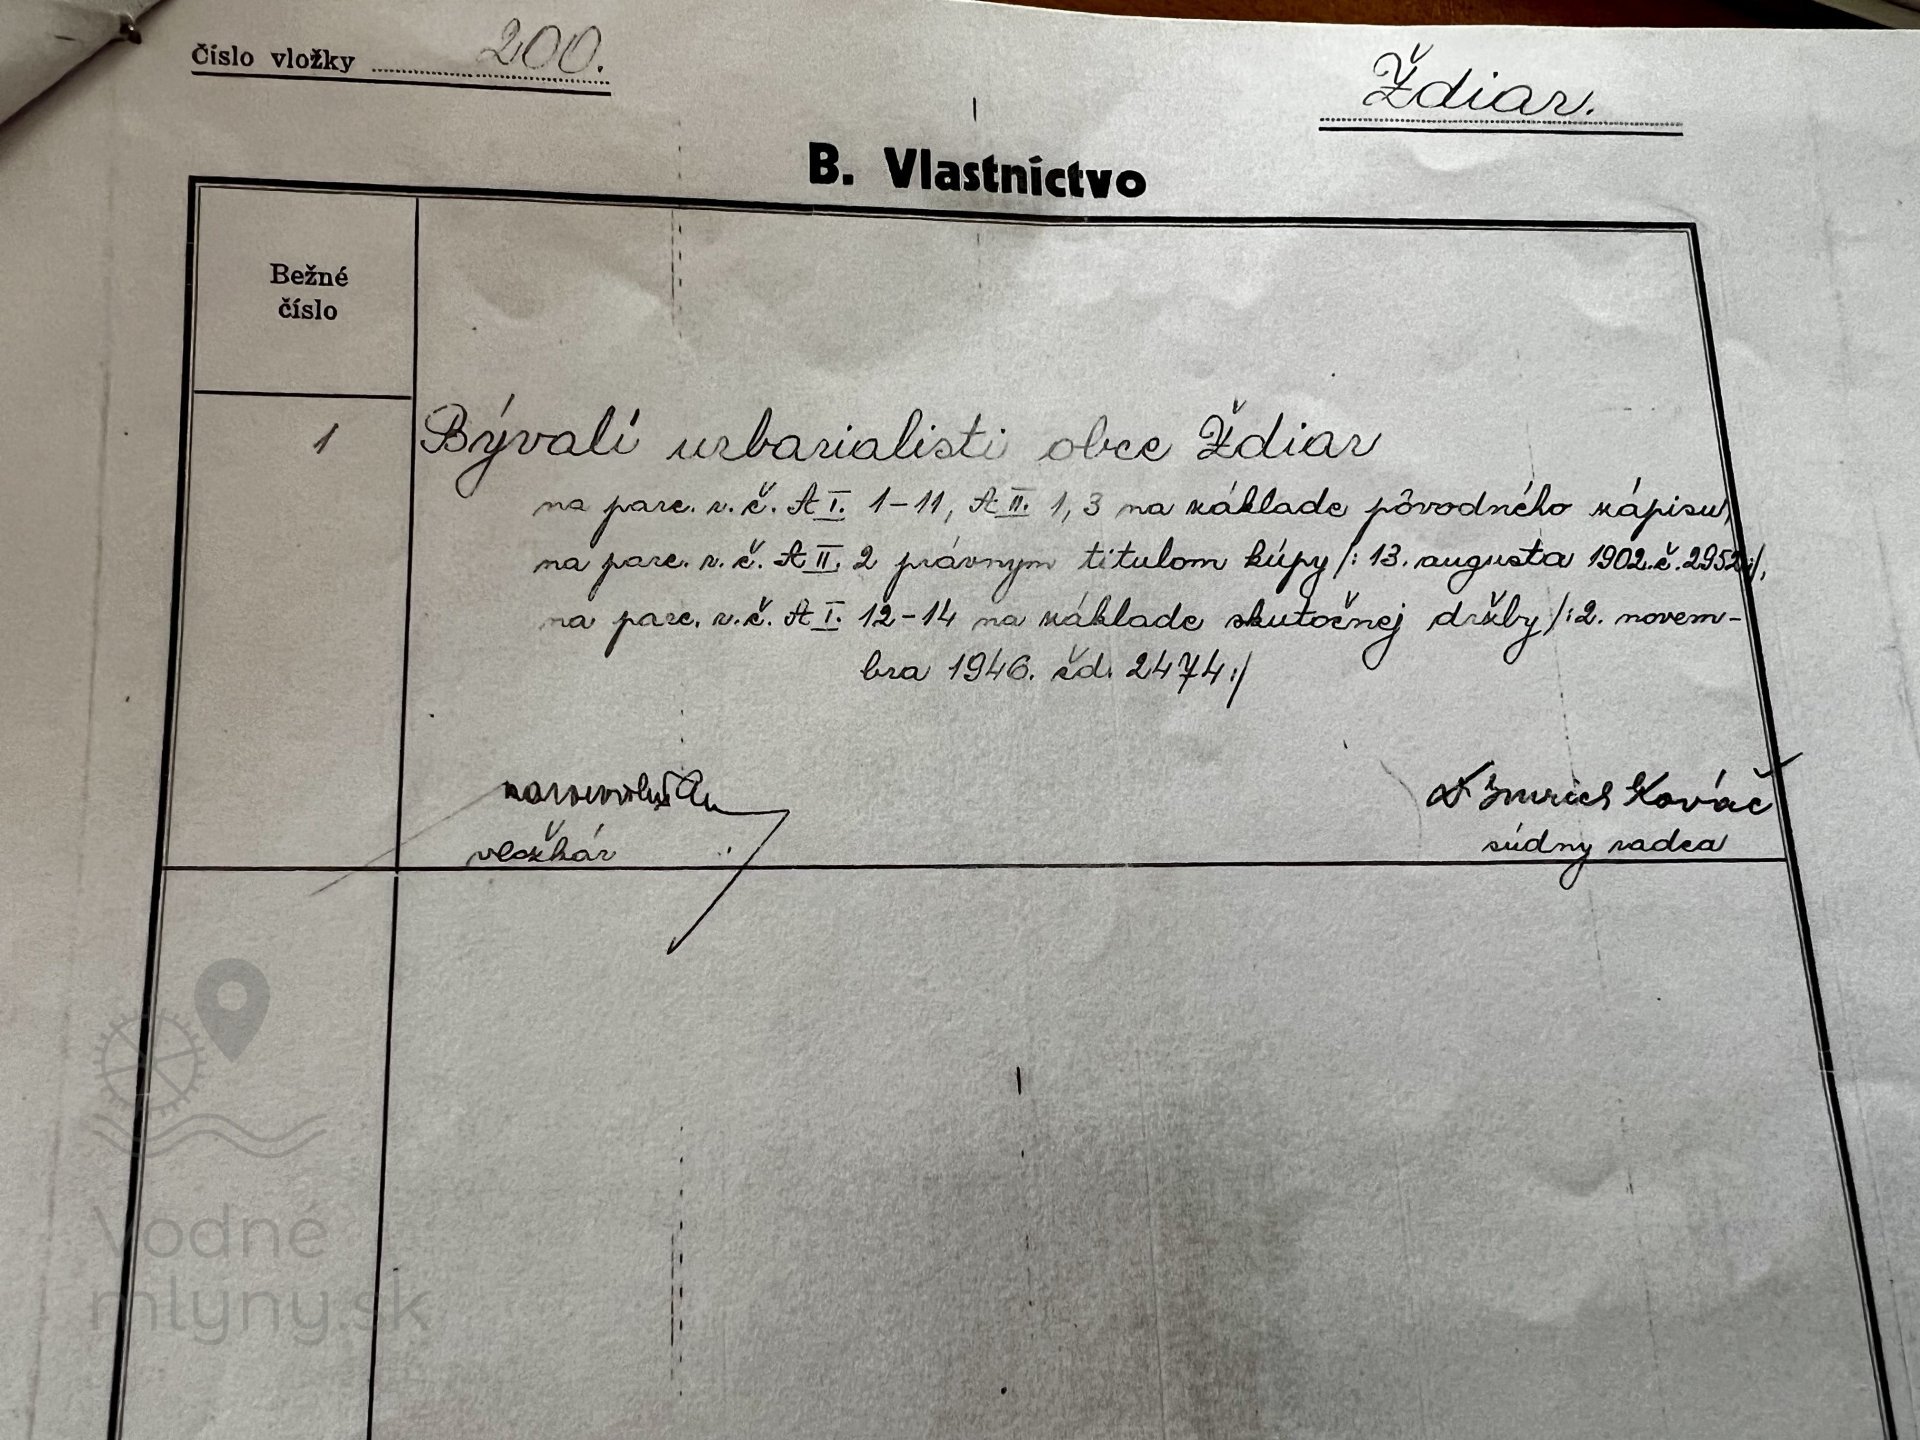 Číslo vložky 200.
Ždiar.
B. Vlastníctvo
Bežné
číslo
1
Bývalí urbarialisti obce Ždiar
na parc. r. č. A I. 1-11, A II. 1, 3 na základe pôvodného zápisu,
na parc. r. č. A II. 2 právnym titulom kúpy /: 13. augusta 1902. č. 2952 :/,
na parc. r. č. A I. 12-14 na základe skutočnej držby /: 2. novem-
bra 1946. čd. 2474 :/
Imrich Kováč
vložkár
súdny radca
Vodné
mlyny.sk